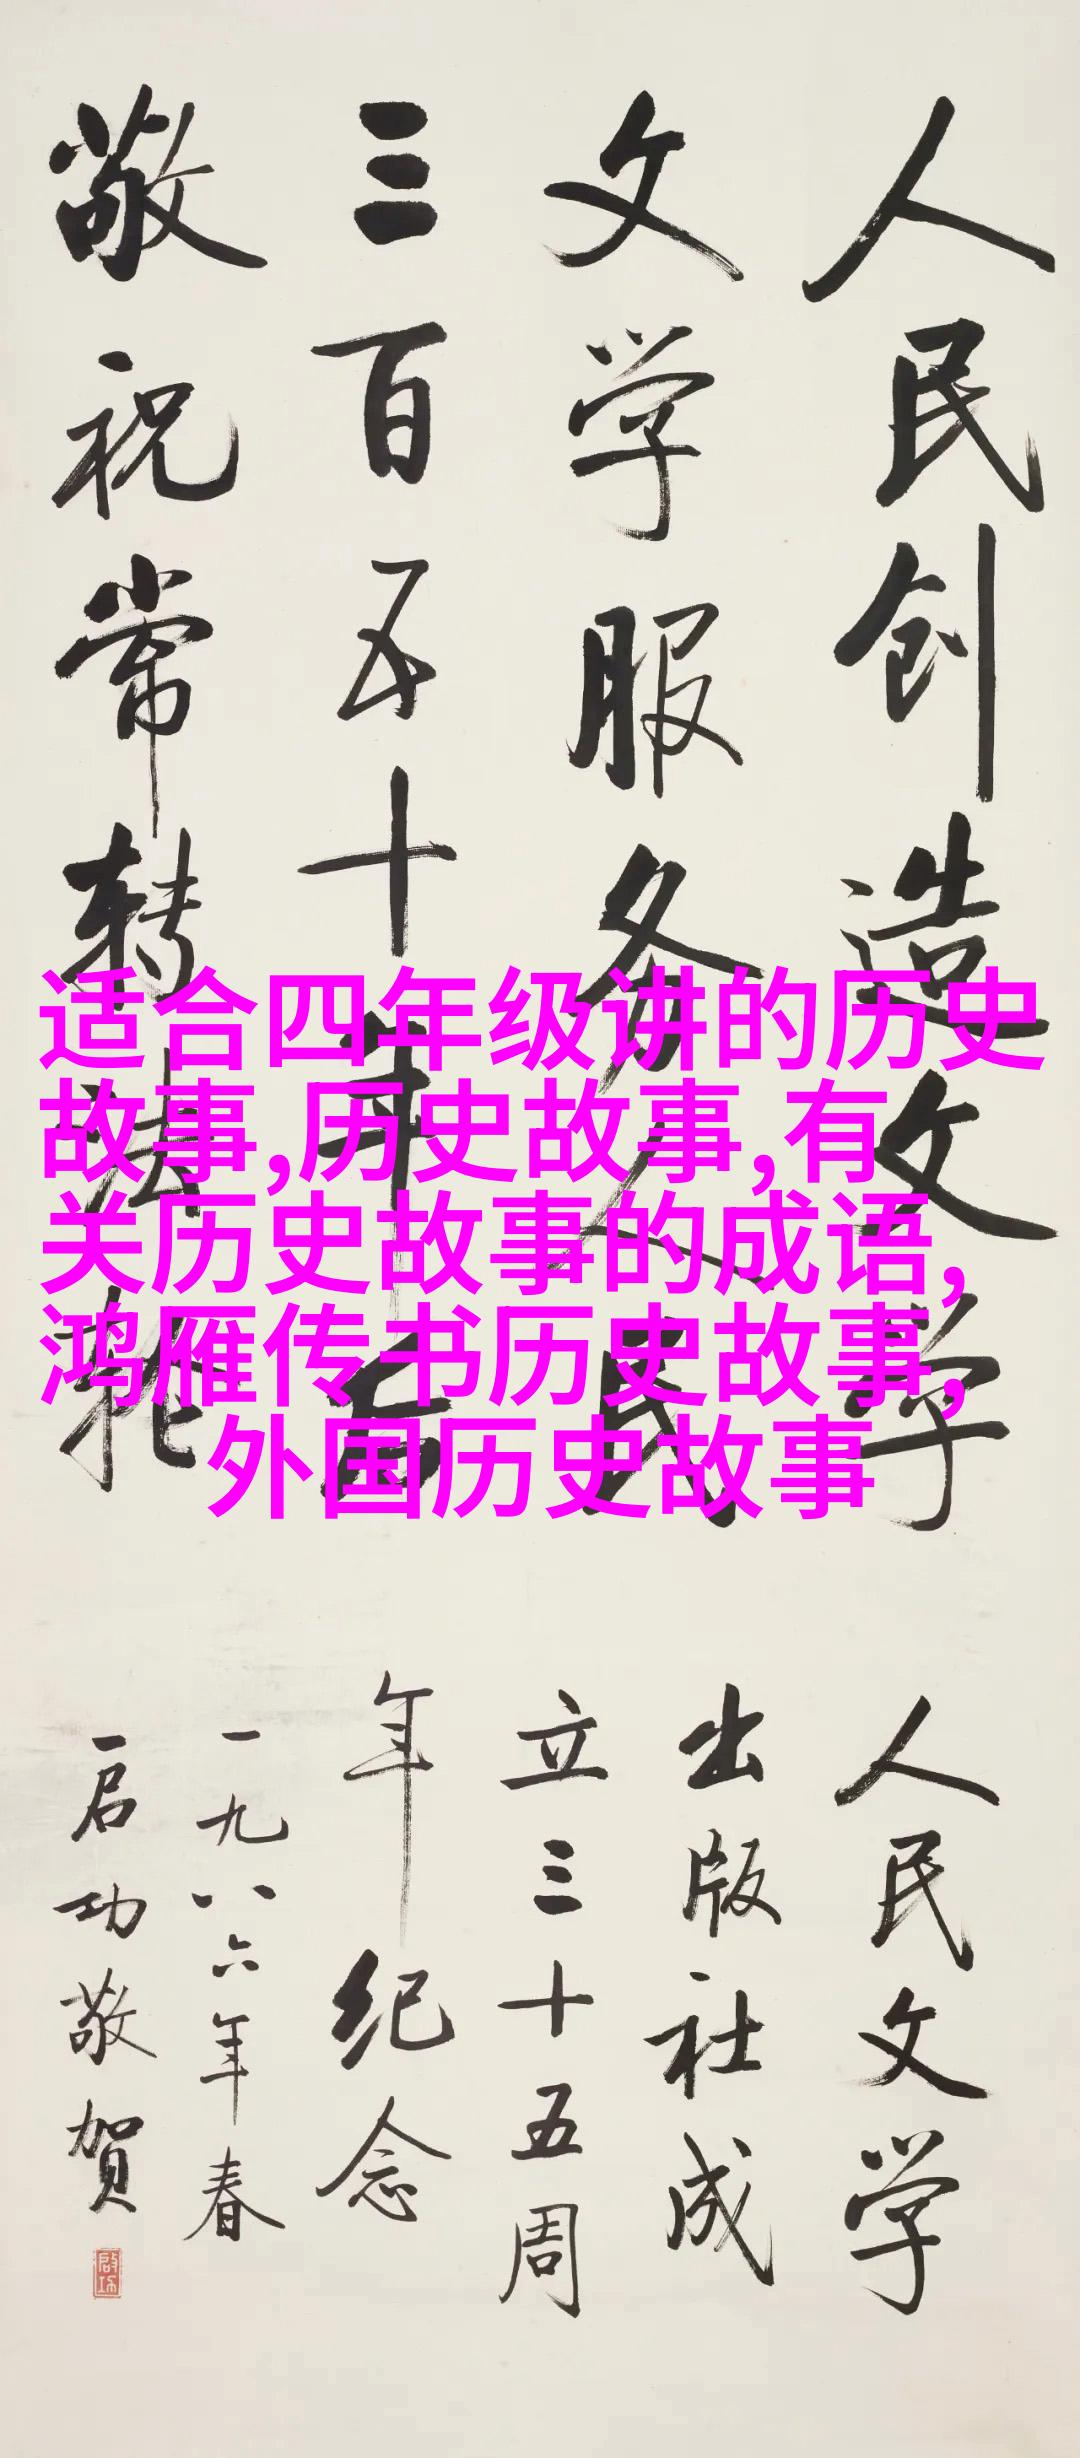 人民创造文学
文学服务人民
三百五十年后
敬祝常转法轮
人民文学
出版社成
立三十五周
年纪念
一九八六年春
启功敬贺
启功
适合四年级讲的历史
故事,历史故事,有
关历史故事的成语,
鸿雁传书历史故事,
外国历史故事